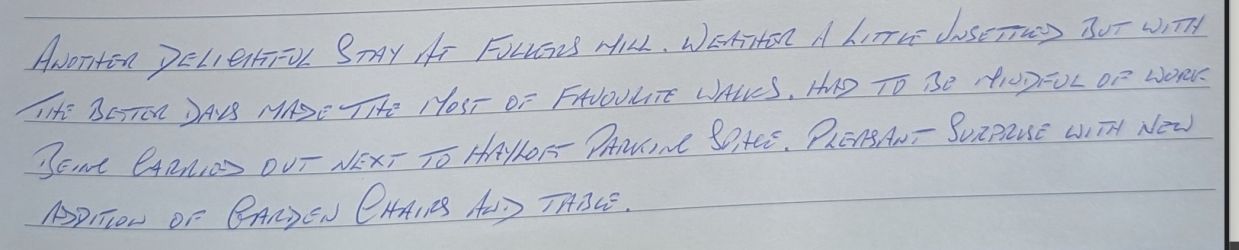 ANOTHER DELIGHTFUL STAY AT FULLERS MILL. WEATHER A LITTLE UNSETTLED BUT WITH
THE BETTER DAYS MADE THE MOST OF FAVOURITE WALKS. HAD TO BE MINDFUL OF WORK
BEING CARRIED OUT NEXT TO HAYLOFT PARKING SPACE. PLEASANT SURPRISE WITH NEW
ADDITION OF GARDEN CHAIRS AND TABLE.